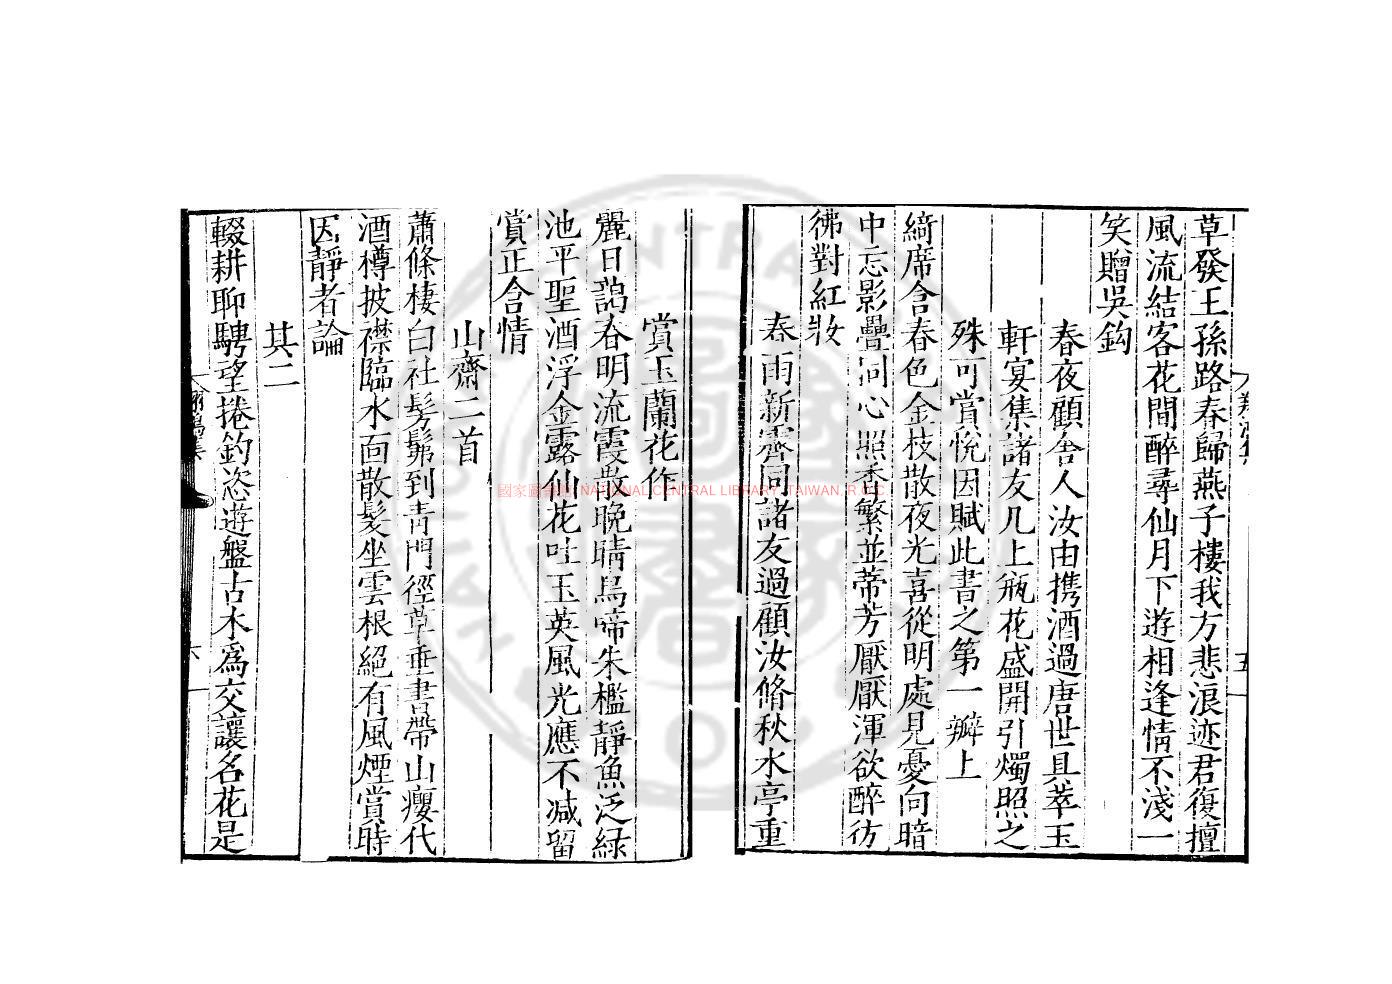 草發王孫路春歸燕子樓我方悲浪迹君復擅
風流結客花間醉尋仙月下遊相逢情不淺一
笑贈吳鈎
春夜顧舍人汝由携酒過唐世具萃玉
軒宴集諸友几上瓶花盛開引燭照之
殊可賞悅因賦此書之第一瓣上
綺席含春色金枝散夜光喜從明處見憂向暗
中忘影疊洞心照香繁並蒂芳厭厭渾欲醉彷
彿對紅妝
春雨新霽同諸友過顧汝脩秋水亭重
賞玉蘭花作
麗日藹春明流霞散晚晴鳥啼朱檻靜魚泛綠
池平聖酒浮金露仙花吐玉英風光應不减留
賞正含情
山齋二首
蕭條棲白社髣髴到青門徑草垂書帶山癭代
酒樽披襟臨水面散髮坐雲根絕有風煙賞時
因靜者論
其二
輟耕聊騁望捲釣恣遊盤古木為交讓名花是
五
六
國家圖書館 NATIONAL CENTRAL LIBRARY, TAIWAN, R.O.C